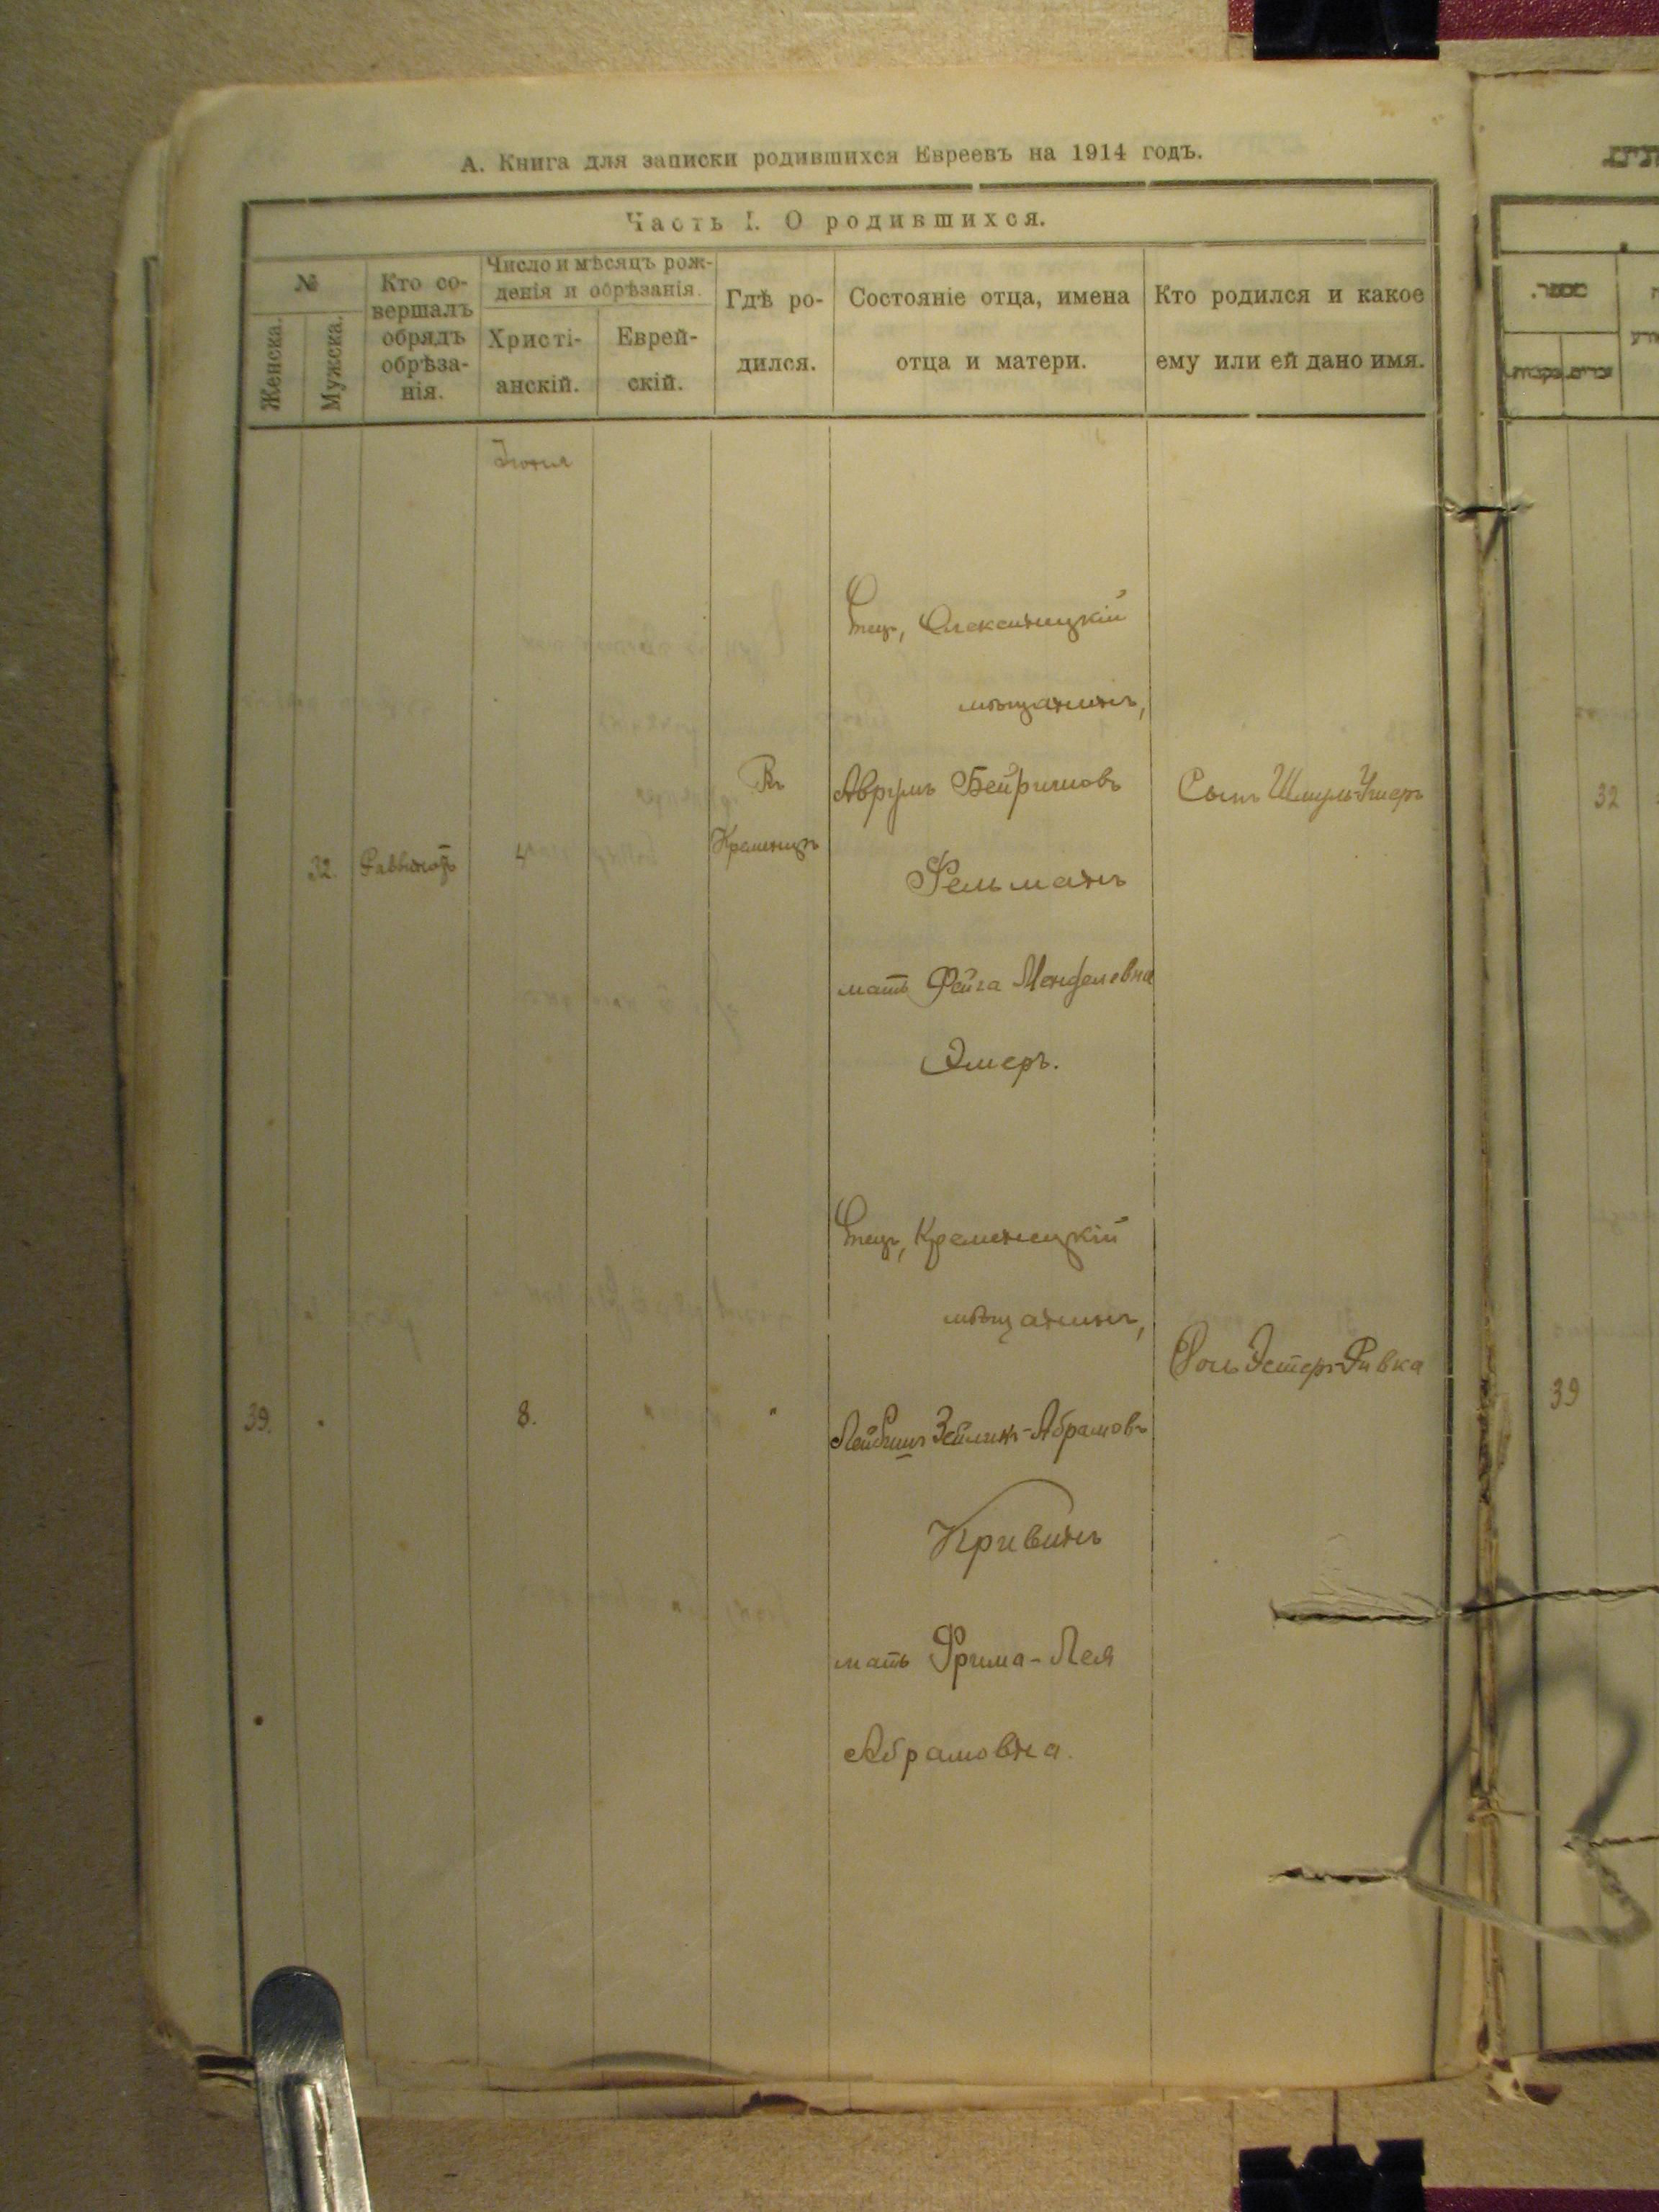 А. Книга для записки родившихся Евреевъ на 1914 годъ.
Часть I. О родившихся.
№
Женска.
Мужска.
Кто со-
вершалъ
обрядъ
обрѣза-
нія.
Число и мѣсяцъ рож-
денія и обрѣзанія.
Христі-
анскій.
Еврей-
скій.
Гдѣ ро-
дился.
Состояніе отца, имена
отца и матери.
Кто родился и какое
ему или ей дано имя.
32.
4
Въ
Кременцѣ
Отецъ, Олексинецкій
мѣщанинъ,
Аврумъ Бейришовъ
Фельманъ
мать Фейга Менделевна
Эмеръ.
Сынъ Шмуль-Ушеръ
39.
8.
"
Отецъ, Кременецкій
мѣщанинъ,
Лейбишъ Зейликъ-Абрамовъ
Кривинъ
мать Фрима-Лея
Абрамовна.
Дочь Эстеръ-Ривка
32
39